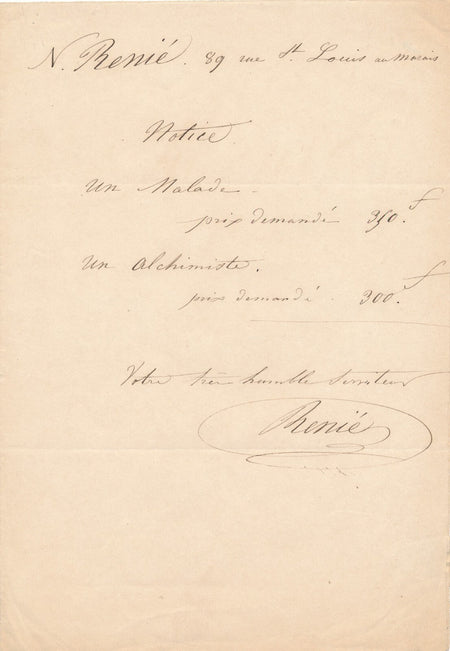 N. Renié. 89 rue St. Louis au marais
Notice
Un Malade.
prix demandé 350.f
Un Alchimiste.
prix demandé. 300.f
Votre très humble Serviteur
Renié